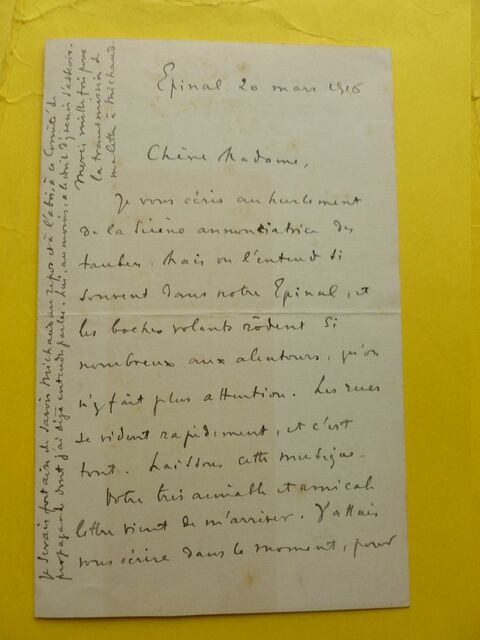 Epinal 20 mars 1916
Chère Madame,
Je vous écris au hurlement
de la Sirène annonciatrice des
tauben. Mais on l'entend si
souvent dans notre Epinal, et
les boches volants rôdent si
nombreux aux alentours, qu'on
n'y fait plus attention. Les rues
se vident rapidement, et c'est
tout. Laissons cette musique.
Votre très aimable et amicale
lettre vient de m'arriver. J'allais
vous écrire dans le moment, pour
Je serais fort aise de savoir Michaud au repos et à l'abri, à ce Comité de
propagande dont j'ai déjà entendu parler. Lui, au moins, a le droit d'y
Merci mille fois pour
la transmission de
ma lettre à Michaud.